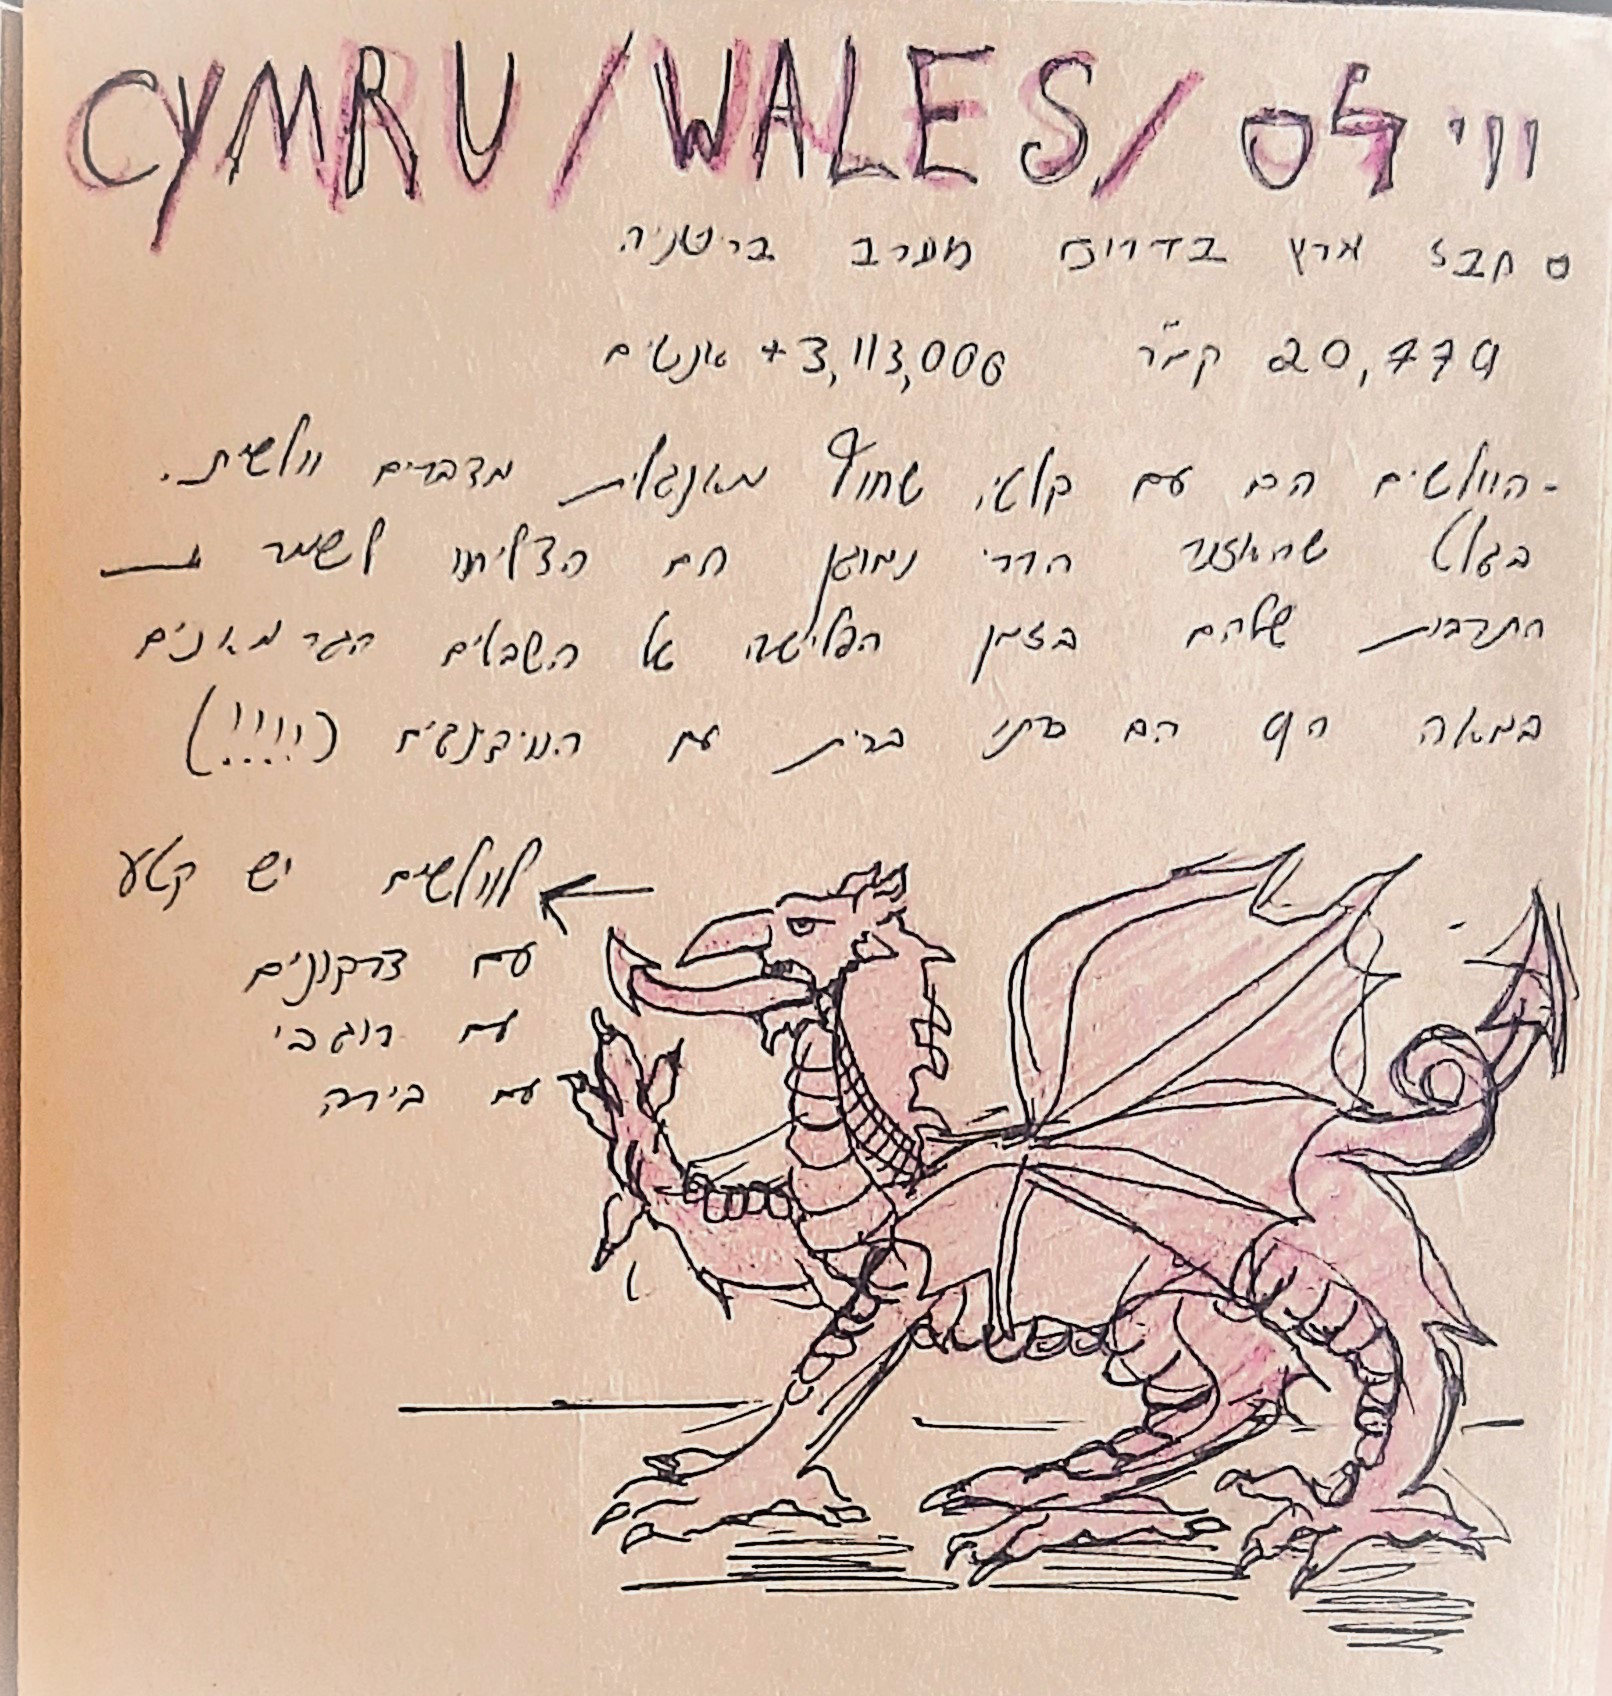 CYMRU/WALES/ ויילס
חבל ארץ בדרום מערב בריטניה
20,779 קמ"ר 3,113,000+ אנשים
-הוולשים הם עם קלטי, שחוץ מאנגלית מדברים וולשית.
בגלל שהאזור הררי נמוגן הם הצליחו לשמר את
התרבות שלהם בזמן הפלישה של השבטים הגרמאנים
במאה ה9 הם כרתו ברית עם הוויקינגים (!!!!)
לוולשים יש קטע
עם דרקונים
עם רוגבי
עם בירה